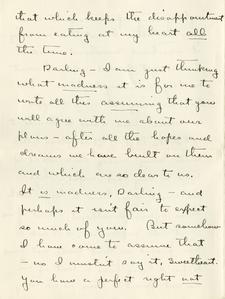 that which keeps the disappointment
from eating at my heart all
the time.
Darling - I am just thinking
what madness it is for me to
write all this assuming that you
will agree with me about our
plans - after all the hopes and
dreams we have built on them
and which are so dear to us.
It is madness, Darling - and
perhaps it isn't fair to expect
so much of you. But somehow
I have come to assume that
- no I mustn't say it, sweetheart.
You have a perfect right not